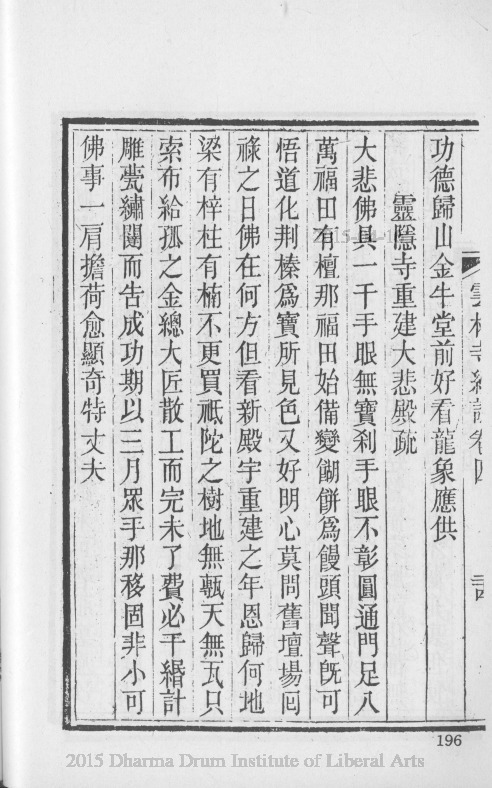 雲林寺續誌卷四
功德歸山金牛堂前好看龍象應供
靈隱寺重建大悲殿疏
大悲佛具一千手眼無寶刹手眼不彰圓通門足八
萬福田有檀那福田始備變餬餅爲饅頭聞聲旣可
悟道化荆榛爲寶所見色又好明心莫問舊壇場囘
祿之日佛在何方但看新殿宇重建之年恩歸何地
梁有梓柱有楠不更買祗陀之樹地無瓻天無瓦只
索布給孤之金總大匠散工而完未了費必千緡計
雕甍繡闥而告成功期以三月眾手那移固非小可
佛事一肩擔荷愈顯奇特丈夫
196
2015 Dharma Drum Institute of Liberal Arts